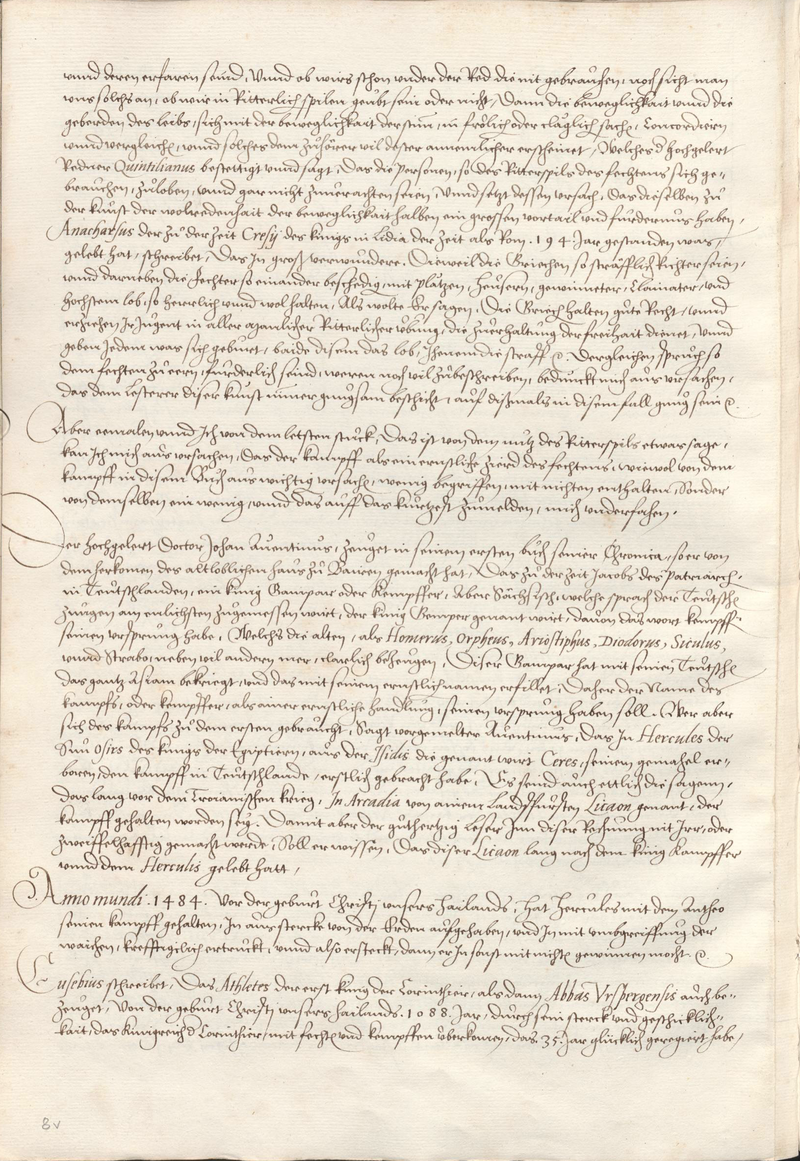 vnnd deren erfaren seind, Vnnd ob wirs schon vnder der Red die nit gebrauchen, noch sicht man
vns solchs an, ob wir in Ritterlich spilen geübt sein oder nicht, Dann die beweglichkait vnnd die
geberden des leibs, sich mit der beweglichkait der stim, in frölich oder cläglich sachen, Concordiern
vnnd vergleichen, vnnd solches dem Zuhörer vil dester annemlicher erscheinet, Welches d hochgelert
Redner Quintilianus bestettigt vnnd sagt, Das die personen, so des Ritterspils des fechtens sich ge-
brauchen, Zuloben, vnnd gar nicht Zuuerachten seien, Vnnd setzt dessen vrsach, Das dieselben zu
der kunst der wolredenhait der beweglichkait halben ein grossen vortail vnd fürdernus haben,
Anacharsus der zu der Zeit Cresy des künigs in Lidia der Zeit als Rom 194 Jar gestanden was,
gelebt hat, schreibet, Das In groß verwundere, Dieweil die Griechen so sträfflich Richter seien,
vnnd darneben die fechter so einander beschedig, mit plätzen, heusern, gewinneter, Clainater, vnd
höchstem lob, so herrlich vnnd wol halten, Als wolte Er sagen, Die Griech halten gute Recht, vnnd
erziehen Ir Jugent in aller manlicher Ritterlicher übung, die Zuerhaltung der freihait dienet, Vnnd
geben Jedem was sich gebürt, baide disem das lob, Jhenem die straff &. Dergleichen spruch so
dem fechten zu eern, fürderlich seind, weren noch vil zubeschreiben, bedunckt mich aus vrsachen,
das dem lesterer diser kunst nimer gnugsam beschicht, auf dißmals in disem fall gnug sein &.
Aber eemalen vnnd Ich von dem letsten stuck, Das ist von dem nutz des Ritterspils etwas sage,
kan Ich mich aus vrsachen, Das der kampff als ein ernstliche zierd des fechtens, wiewol von dem
kampff in disem Buch aus wichtig vrsachen, wenig begriffen, mit nichten enthalten, Sonder
von demselben ein wenig, vnnd das auff das kürtzest Zumelden, mich vnderfahen.
Der hochgelert Doctor Johan Auentinus, Zeuget in seinem ersten buch seiner Chronica, so er von
dem herkomen des alt loblichen haus zu Bairen gemacht hat, Das zu der Zeit Jacobs des Patriarch,
in Teutschlanden, ein künig Gampar oder kempffer, Aber Sächsisch, welche sprach der Teutschen
zungen am enlichsten zugemessen wirt, der künig Gemper genant wirt, dauon das wort kempff
seinen vrsprung habe, Welchs die alten, als Homerus, Orpheus, Aristiphus, Diodorus, Siculus,
vnnd Strabo, neben vil andern mer, clarlich bezeugen, Diser Gampar hat mit seinen Teutschen
das gantz Asiam bekriegt, vnd das mit seinem ernstlich namen erfillet, Daher der Name des
kampfs, oder kempffer, als ainer ernstliche handlung, seinen vrsprung haben soll. Wer aber
sich des kampfs zu dem ersten gebraucht, Sagt vorgemelter Auentinus, das In Hercules der
Sun Osirs des künigs der Egiptiern, aus der Isidis die genant wirt Ceres, seinem gemahel er-
boren, den kampff in Teutschlande, erstlich gebracht habe, Es seind auch ettlich die sagenn,
das lang vor dem Troianischen krieg, In Arcadia von ainem Landsfürsten Licaon genant, der
kampff gehalten worden sey. Damit aber der guthertzig leser Inn diser Rechnung nit Irr, oder
zweiffelhafftig gemacht werde, Soll er wissen, Das diser Licaon lang nach dem künig Kampffer
vnnd dem Herculis gelebt hatt,
Anno mundi 1484. Vor der geburt Christj vnsers hailands, hat Hercules mit dem Antheo
seinen kampff gehalten, In aus stercke von der Erden aufgehaben, vnd In mit vmbgreiffung der
waichen, krefftigclich ertruckt, vnnd also ersteckt, dann er In sonst mit nichte gewinnen mocht &.
Eusebius schreibet, Das Athletes der erst künig der Corinthier, als dann Abbas Vrspergensis auch be-
zeuget, Von der geburt Christj vnsers hailands 1088 Jar, durch sein sterck vnd geschicklich-
kait, das künigreich d Corinthier, mit fechten vnd kampffen überkomen, das 35 Jar glücklich geregiert habe,
8v